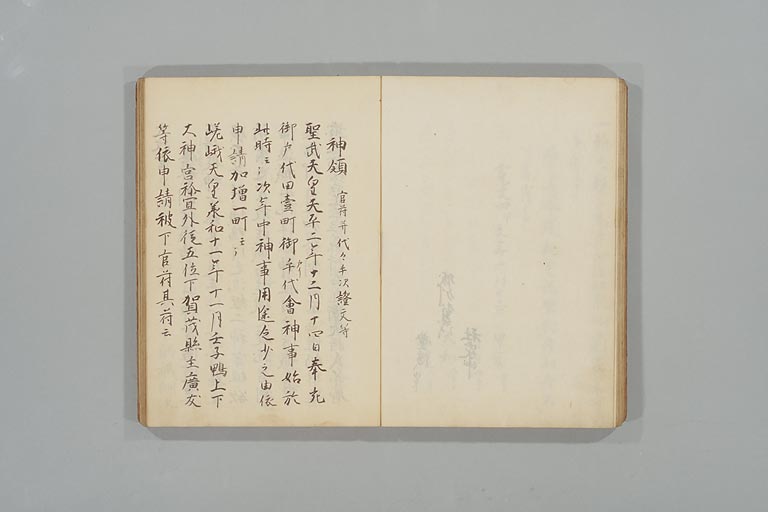 神領 官符并代々手次證文等
聖武天皇天平二年十二月十四日奉充
御戸代田壹町御戸代會神事始於
此時云々次年中神事用途乏少之由依
申請加増一町云々
嵯峨天皇承和十一年十一月壬子鴨上下
大神宮祢宜外従五位下賀茂縣主廣友
等依申請被下官符其符云